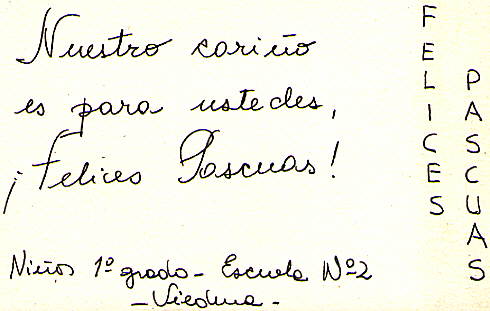 Nuestro cariño
es para ustedes,
¡Felices Pascuas!
Niños 1º grado - Escuela Nº2
- Viedma -
FELICES
PASCUAS